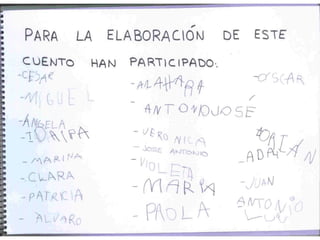 PARA LA ELABORACIÓN DE ESTE
CUENTO HAN PARTICIPADO:
-CESAR
-MIGUEL
-ANGELA
-IDAIRA
-MARINA
-CLARA
-PATRICIA
-ALVARO
-
-ANTONIOJOSÉ
-VERONICA
-JOSE ANTONIO
-VIOLETA
-MARIA
-PAOLA
-OSCAR
-ADRIÁN
-JUAN
ANTONIO